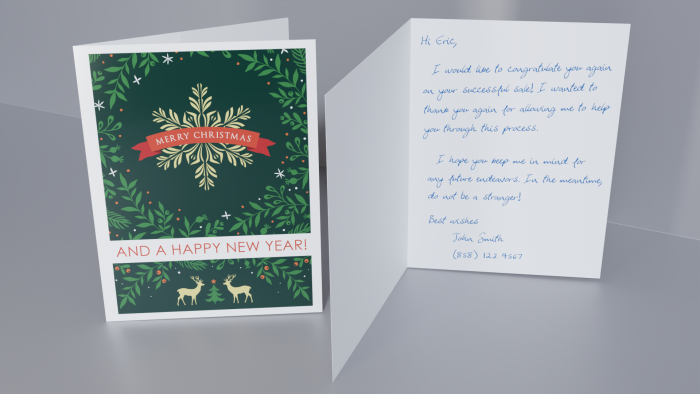 MERRY CHRISTMAS
AND A HAPPY NEW YEAR!
Hi Eric,
I would like to congratulate you again
on your successful sale! I wanted to
thank you again for allowing me to help
you through this process.
I hope you keep me in mind for
any future endeavors. In the meantime,
do not be a stranger!
Best wishes
John Smith
(858) 123 4567